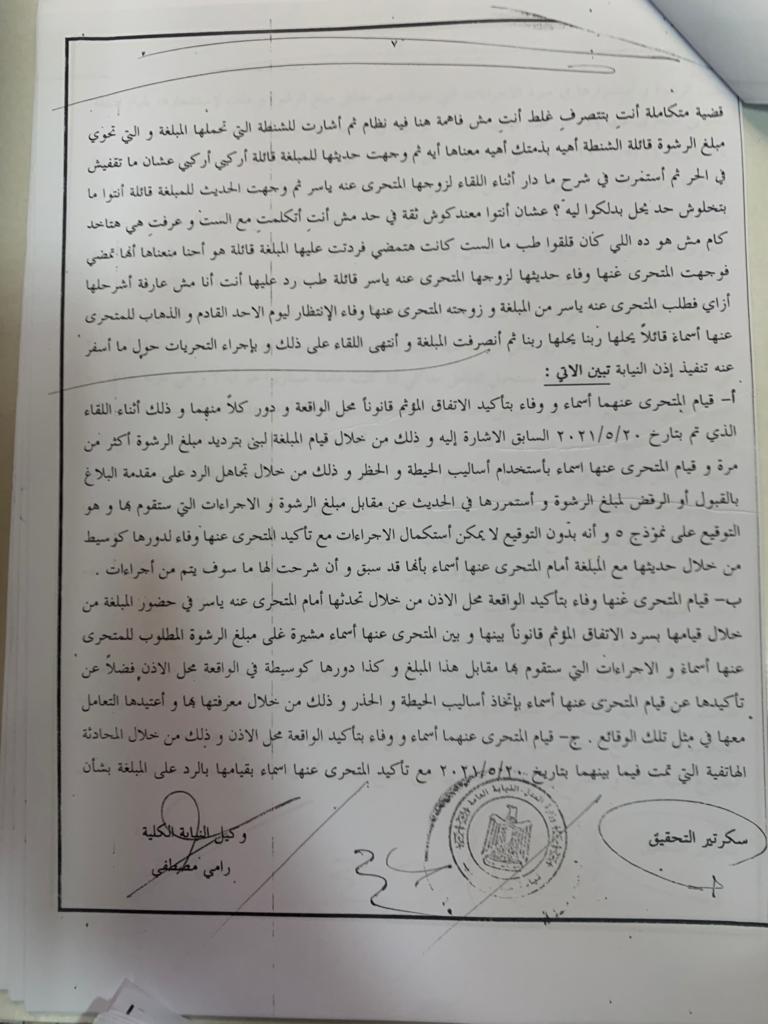 ٧
قضية متكاملة أنتِ بتتصرفِ غلط أنتِ مش فاهمة هنا فيه نظام ثم أشارت للشنطة التي تحملها المبلغة و التي تحوي
مبلغ الرشوة قائلة الشنطة أهيه بذمتك أهيه معناها أيه ثم وجهت حديثها للمبلغة قائلة أركبي أركبي عشان ما تقفيش
في الحر ثم أستمرت في شرح ما دار أثناء اللقاء لزوجها المتحرى عنه ياسر ثم وجهت الحديث للمبلغة قائلة أنتوا ما
بتخلوش حد يحل بدلكوا ليه ؟ عشان أنتوا معندكوش ثقة في حد مش أنتِ أتكلمتِ مع الست و عرفتِ هي هتاخد
كام مش هو ده اللي كان قلقوا طب ما الست كانت هتمضي فردتت عليها المبلغة قائلة هو أحنا منعناها أنها تمضي
فوجهت المتحرى عنها وفاء حديثها لزوجها المتحرى عنه ياسر قائلة طب رد عليها أنت أنا مش عارفة أشرحلها
أزاي فطلب المتحرى عنه ياسر من المبلغة و زوجته المتحرى عنها وفاء الإنتظار ليوم الاحد القادم و الذهاب للمتحرى
عنها أسماء قائلاً يحلها ربنا يحلها ربنا ثم أنصرفت المبلغة و أنتهى اللقاء على ذلك و بإجراء التحريات حول ما أسفر
عنه تنفيذ إذن النيابة تبين الاتي :
أ- قيام المتحرى عنهما أسماء و وفاء بتأكيد الاتفاق المؤثم قانوناً محل الواقعة و دور كلاً منهما و ذلك أثناء اللقاء
الذي تم بتارخ ٢٠٢١/٥/٢٠ السابق الاشارة إليه و ذلك من خلال قيام المبلغة لبنى بترديد مبلغ الرشوة أكثر من
مرة و قيام المتحرى عنها اسماء بأستخدام أساليب الحيطة و الحظر و ذلك من خلال تجاهل الرد على مقدمة البلاغ
بالقبول أو الرفض لمبلغ الرشوة و أستمررها في الحديث عن مقابل مبلغ الرشوة و الاجراءات التي ستقوم بها و هو
التوقيع على نموذج ٥ و أنه بدون التوقيع لا يمكن أستكمال الاجراءات مع تأكيد المتحرى عنها وفاء لدورها كوسيط
من خلال حديثها مع المبلغة أمام المتحرى عنها أسماء بأنها قد سبق و أن شرحت لها ما سوف يتم من أجراءات .
ب- قيام المتحرى عنها وفاء بتأكيد الواقعة محل الاذن من خلال تحدثها أمام المتحرى عنه ياسر في حضور المبلغة من
خلال قيامها بسرد الاتفاق المؤثم قانوناً بينها و بين المتحرى عنها أسماء مشيرة على مبلغ الرشوة المطلوب للمتحرى
عنها أسماء و الاجراءات التي ستقوم بها مقابل هذا المبلغ و كذا دورها كوسيطة في الواقعة محل الاذن فضلاً عن
تأكيدها عن قيام المتحرى عنها أسماء بإتخاذ أساليب الحيطة و الحذر و ذلك من خلال معرفتها بها و أعتيدها التعامل
معها في مثل تلك الوقائع . ج- قيام المتحرى عنهما أسماء و وفاء بتأكيد الواقعة محل الاذن و ذلك من خلال المحادثة
الهاتفية التي تمت فيما بينهما بتاريخ ٢٠٢١/٥/٢٠ مع تأكيد المتحرى عنها اسماء بقيامها بالرد على المبلغة بشأن
سكرتير التحقيق
وكيل النيابة الكلية
رامي مصطفى